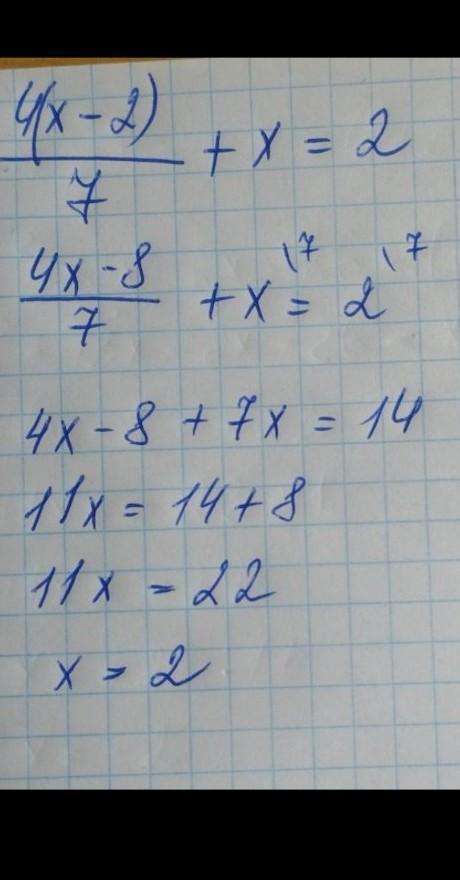 4(x - 2)/7 + x = 2
4x - 8/7 + x\7 = 2\7
4x - 8 + 7x = 14
11x = 14 + 8
11x = 22
x = 2